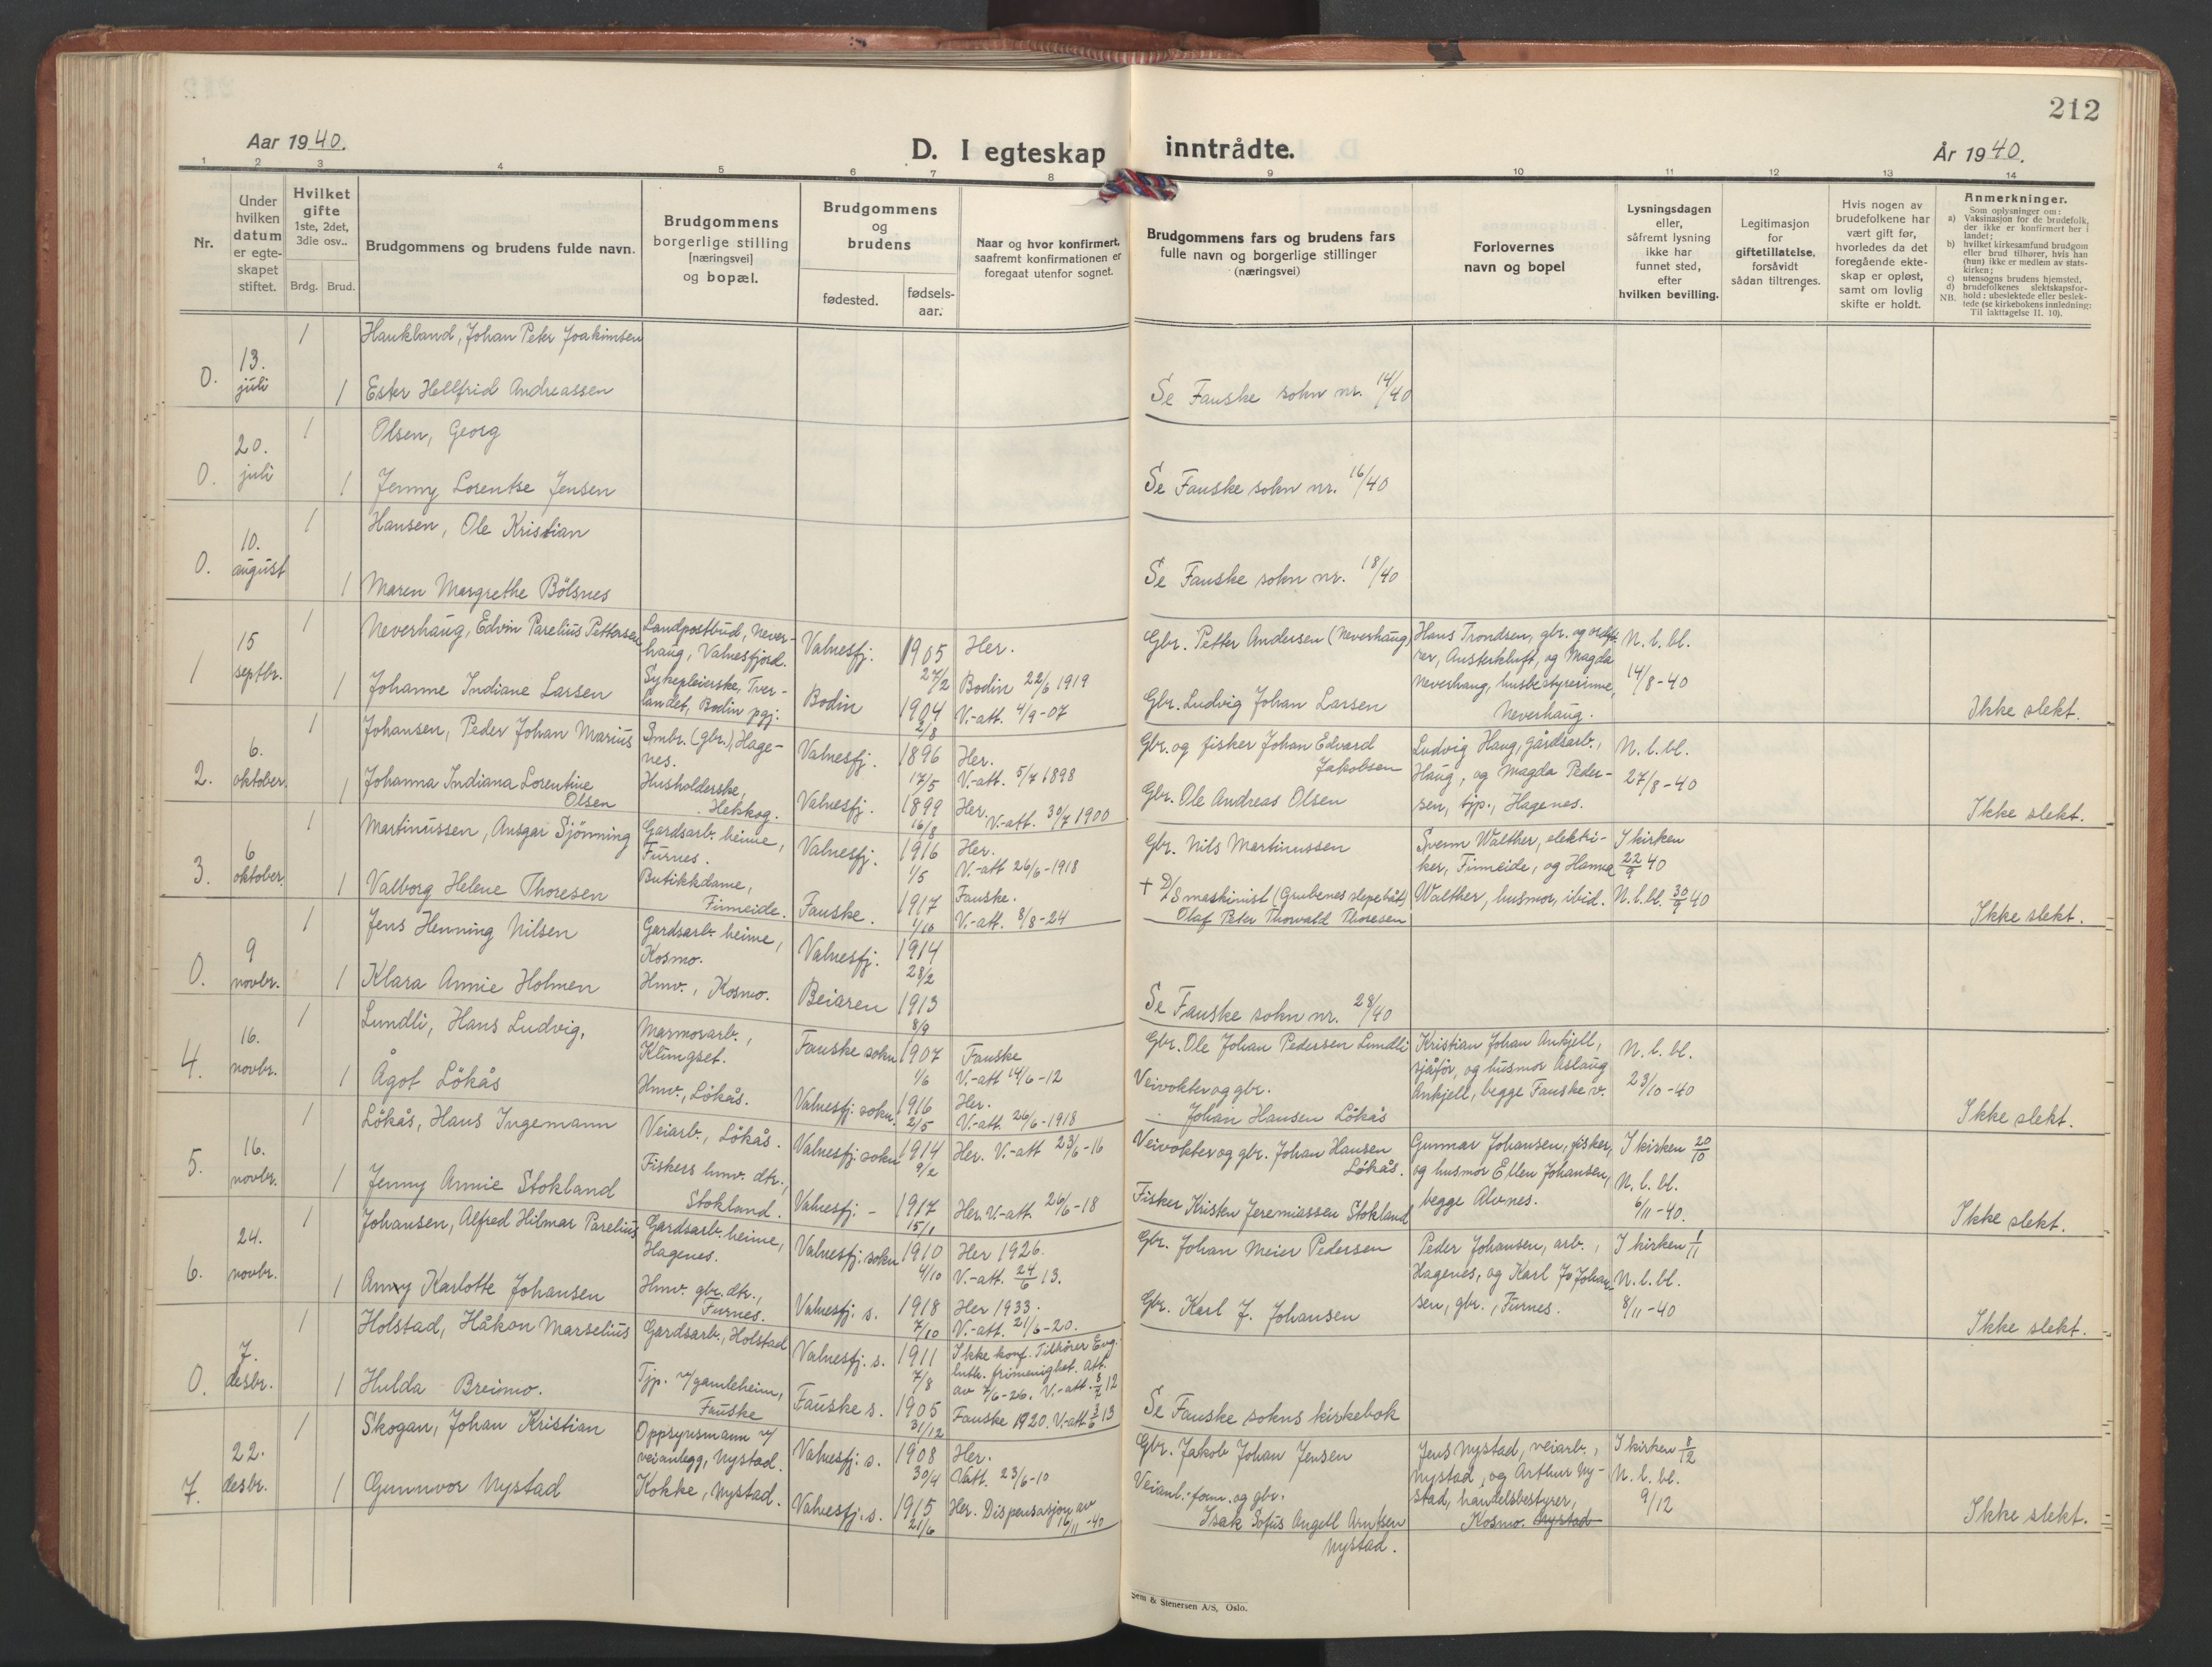 212
Aar 1940.
D. I egteskap inntrådte.
År 1940.
1 2 3 4 5 6 7 8 9 10 11 12 13 14
Nr.
Under hvilken datum er egteskapet stiftet.
Hvilket gifte 1ste, 2det, 3die osv..
Brdg. Brud.
Brudgommens og brudens fulde navn.
Brudgommens borgerlige stilling [næringsvei] og bopæl.
Brudgommens og brudens
fødested. fødsels-aar.
Naar og hvor konfirmert, saafremt konfirmationen er foregaat utenfor sognet.
Brudgommens fars og brudens fars fulle navn og borgerlige stillinger (næringsvei)
Forlovernes navn og bopel
Lysningsdagen eller, såfremt lysning ikke har funnet sted, efter hvilken bevilling.
Legitimasjon for giftetillatelse, forsåvidt sådan tiltrenges.
Hvis nogen av brudefolkene har vært gift før, hvorledes da det foregående ekteskap er opløst, samt om lovlig skifte er holdt.
Anmerkninger.
Som oplysninger om:
a) Vaksinasjon for de brudefolk, der ikke er konfirmert her i landet;
b) hvilket kirkesamfund brudgom eller brud tilhører, hvis han (hun) ikke er medlem av statskirken;
c) utensogns brudens hjemsted.
d) brudefolkenes slektskapsforhold: ubeslektede eller beslektede (se kirkebokens innledning: Til iakttagelse II. 10).
NB.
0. 13. juli 1 Haukland, Johan Peter Joakimsen
1 Ester Hellfrid Andreassen
Se Fauske sokn nr. 14/40
0. 20. juli 1 Olsen, Georg
1 Jenny Lorentse Jensen
Se Fauske sokn nr. 16/40
0. 10. august 1 Hansen, Ole Kristian
1 Maren Margrethe Bölsnes
Se Fauske sokn nr. 18/40
1 15 septbr. 1 Neverhaug, Edvin Parelius Pettersen
Landpostbud, Neverhaug, Valnesfjord.
Valnesfj. 1905 27/2 Her.
Gbr. Petter Andersen (Neverhaug)
1 Johanne Indiane Larsen
Sykepleierske, Tverlandet, Bodin pgj.
Bodin 1904 2/8
Bodin 22/6 1919
V.-att. 4/9-07
Gbr. Ludvig Johan Larsen
Hans Trondsen, gbr. og ordfører, Austerkluft, og Magda Neverhaug, husbestyrerinne, Neverhaug.
N. l. bl. 14/8-40
Ikke slekt.
2. 6. oktober. 1 Johansen, Peder Johan Marius
Smbr. (gbr.), Hagenes.
Valnesfj. 1896 17/5
Her. V.-att. 5/7 1898
Gbr. og fisker Johan Edvard Jakobsen
1 Johanna Indiana Lorentine Olsen
Husholderske,
Valnesfj. 1899 16/8
Her. V.-att. 30/7 1900
Gbr. Ole Andreas Olsen
Ludvig Haug, gårdsarb., Haug, og Magda Pedersen, tjp., Hagenes.
N. l. bl. 27/8-40
Ikke slekt.
3. 6 oktober. 1 Martinussen, Ansgar Sjönning
Gardsarb. heime, Furnes.
Valnesfj. 1916 1/5
Her. V.-att 26/6-1918
Gbr. Nils Martinussen
1 Valborg Helene Thoresen
Butikkdame, Finneide.
Fauske. 1917 1/10
Fauske. V.-att. 8/8-24
+ D/S maskinist (Grubenes slepebåt) Olaf Peter Thorvald Thoresen
Svenn Walther, elektriker, Finneide, og Hanna Walther, husmor, ibid.
I kirken 22/9 40
N. l. bl. 30/9 40
Ikke slekt.
0. 9 novbr. 1 Jens Henning Nilsen
Gardsarb. heime, Kosmo.
Valnesfj. 1914 28/2
1 Klara Annie Holmen
Hmv., Kosmo.
Beiaren 1913 8/9
Se Fauske sokn nr. 28/40
4. 16. novbr. 1 Lundli, Hans Ludvig,
Marmorarb., Klungset.
Fauske sokn 1907 1/6
Fauske V.-att 14/6-12
Gbr. Ole Johan Pedersen Lundli
1 Ågot Lökås
Hmv., Lökås.
Valnesfj. sokn. 1916 2/5
Her. V.-att. 26/6-1918
Veivokter og gbr. Johan Hansen Lökås
Kristian Johan Ankjell, sjåför, og husmor Aslaug Ankjell, begge Fauske v.
N. l. bl. 23/10-40
Ikke slekt.
5. 16. novbr. 1 Lökås, Hans Ingemann
Veiarb., Lökås.
Valnesfj. sokn 1914 9/2
Her. V.-att 23/6-16
Veivokter og gbr. Johan Hansen Lökås.
1 Jenny Annie Stokland
Fiskers hmv. dtr., Stokland.
Valnesfj. - 1917 15/1
Her. V-att. 26/6-18
Fisker Kristen Jeremiassen Stokland
Gunnar Johansen, fisker, og husmor Ellen Johansen, begge Alvnes.
I kirken 20/10
N. l. bl. 6/11-40.
Ikke slekt.
6. 24. novbr. 1 Johansen, Alfred Hilmar Parelius
Gardsarb. heime, Hagenes.
Valnesfj. sokn 1910 4/10
Her 1926. V.-att. 24/6 13.
Gbr. Johan Meier Pedersen
1 Anny Karlotte Johansen
Hmv. gbr. dtr., Furnes.
Valnesfj. s. 1918 7/10
Her 1933. V.-att. 21/6-20.
Gbr. Karl J. Johansen
Peder Johansen, arb., Hagenes, og Karl J. Johansen, gbr., Furnes.
I kirken 1/11
N. l. bl. 8/11-40
Ikke slekt.
0. 7. desbr. 1 Holstad, Håkon Marselius
Gardsarb., Holstad
Valnesfj. s. 1911 7/8
Ikke konf. Tilhörer Evg. luth. frimenighet. att. av 7/6-26. V.-att. 8/7 12
1 Hulda Breimo.
Tjp. v/gamleheim, Fauske
Fauske s. 1905 31/12
Fauske 1920. V.-att 3/6 13
Se Fauske sokns kirkebok
7. 22. desbr. 1 Skogan, Johan Kristian
Oppsynsmann v/ veianlegg, Nystad.
Valnesfj. s. 1908 30/4
Her. Vatt. 23/6-10
Gbr. Jakob Johan Jensen
1 Gunnvor Nystad
Kokke, Nystad.
Valnesfj. s. 1915 21/6
Her. Dispensasjon av 16/11-40
Veianl.-form. og gbr. Isak Sofus Angell Arntsen Nystad.
Jens Nystad, veiarb., Nystad, og Arthur Nystad, handelsbestyrer, Kosmo. Nystad
I kirken 8/12
N. l. bl. 9/12
Ikke slekt.
Sem & Stenersen A/S, Oslo.